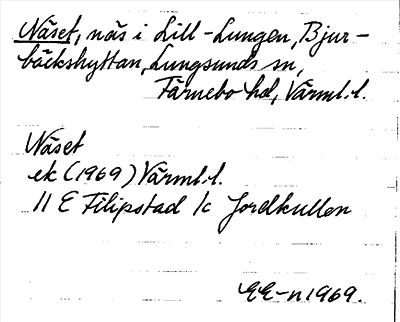 Näset, näs i Lill-Lungen, Bjur-
bäckshyttan, Lungsunds sn,
Färnebo hd, Värml.l.
Näset
ek (1969) Värml.l.
11 E Filipstad 1c Jordkullen
EE-n 1969.